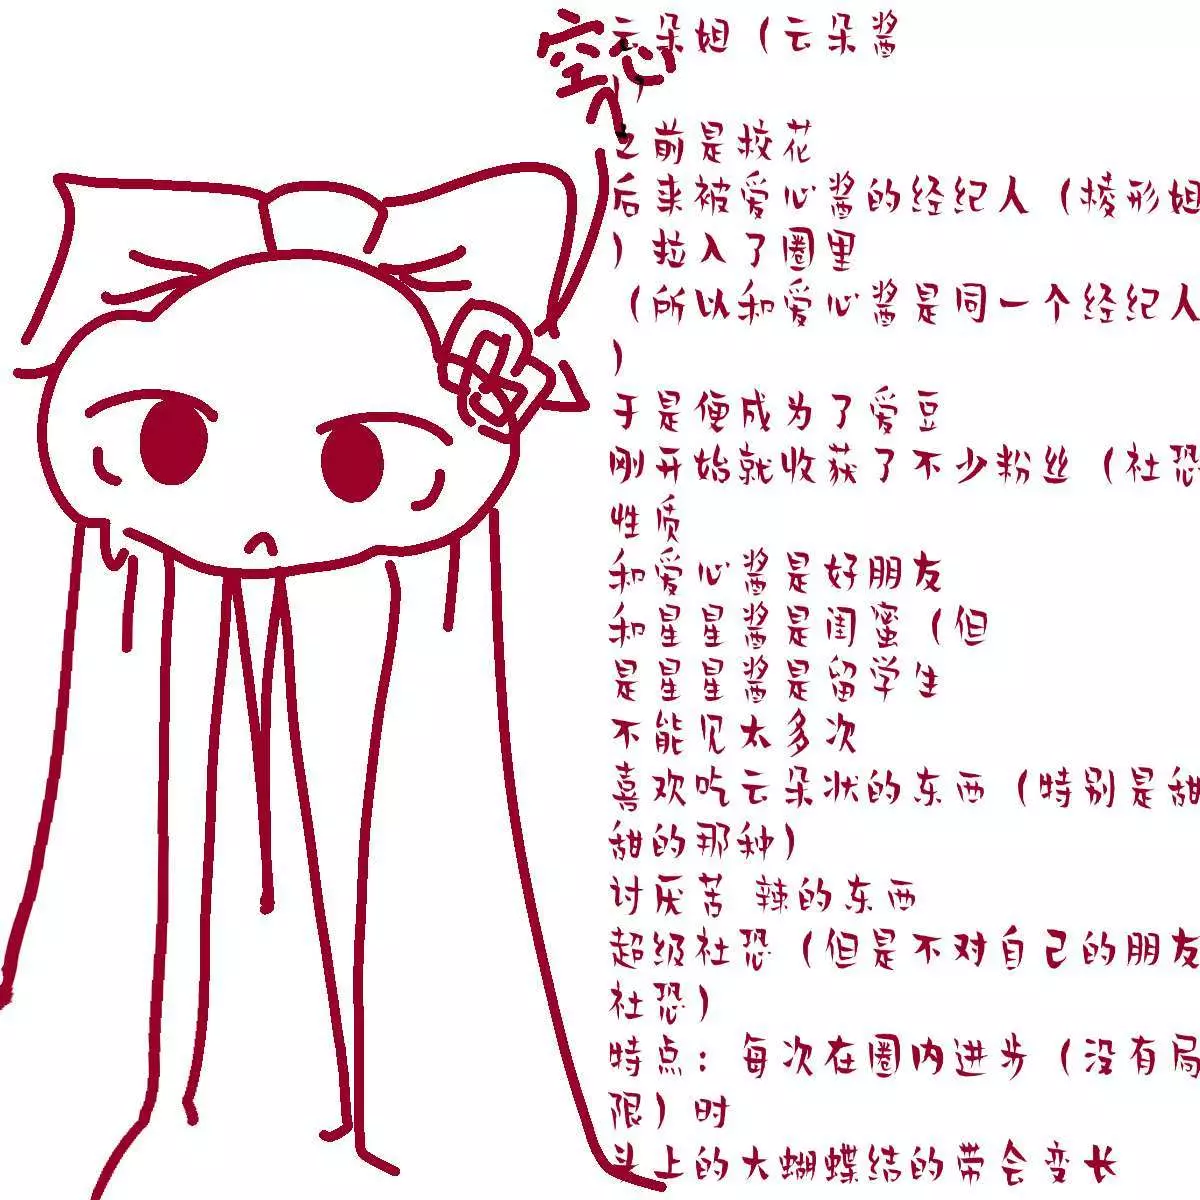 空心
云朵姐（云朵酱
）
之前是校花
后来被爱心酱的经纪人（棱形姐
）拉入了圈里
（所以和爱心酱是同一个经纪人
）
于是便成为了爱豆
刚开始就收获了不少粉丝（社恐
性质
和爱心酱是好朋友
和星星酱是闺蜜（但
是星星酱是留学生
不能见太多次
喜欢吃云朵状的东西（特别是甜
甜的那种）
讨厌苦 辣的东西
超级社恐（但是不对自己的朋友
社恐）
特点：每次在圈内进步（没有局
限）时
头上的大蝴蝶结的带会变长